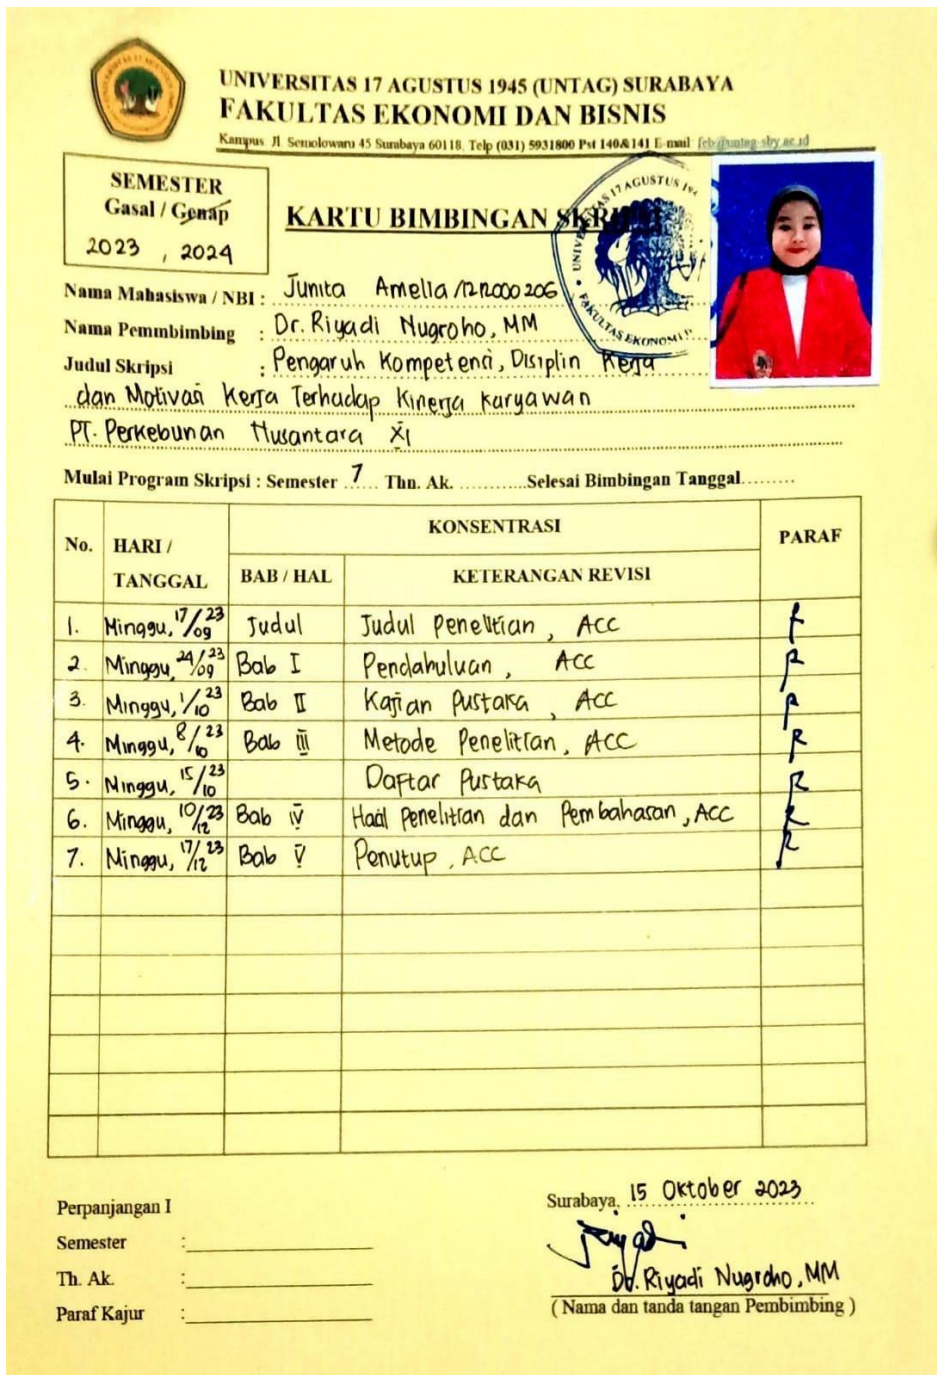 UNIVERSITAS 17 AGUSTUS 1945 (UNTAG) SURABAYA
FAKULTAS EKONOMI DAN BISNIS
Kampus Jl. Semolowaru 45 Surabaya 60118, Telp (031) 5931800 Pst 140&141 E-mail feb@untag-sby.ac.id
SEMESTER
Gasal / Genap
2023 , 2024
KARTU BIMBINGAN
UNIVERSITAS 17 AGUSTUS 194
FAKULTAS EKONOMI D
Nama Mahasiswa / NBI : Junita Amelia /1212000206
Nama Pemmbimbing : Dr. Riyadi Nugroho, MM
Judul Skripsi : Pengaruh Kompetensi, Disiplin Kerja
dan Motivasi Kerja Terhadap Kinerja Karyawan
PT. Perkebunan Nusantara XI
Mulai Program Skripsi : Semester 7 Thn. Ak. ............Selesai Bimbingan Tanggal.........
No. HARI / TANGGAL KONSENTRASI PARAF
BAB / HAL KETERANGAN REVISI
1. Minggu, 17/09 23 Judul Judul Penelitian, ACC
2. Minggu, 24/09 23 Bab I Pendahuluan, ACC
3. Minggu, 1/10 23 Bab II Kajian Pustaka, ACC
4. Minggu, 8/10 23 Bab III Metode Penelitian, ACC
5. Minggu, 15/10 23 Daftar Pustaka
6. Minggu, 10/12 23 Bab IV Hasil Penelitian dan Pembahasan, ACC
7. Minggu, 17/12 23 Bab V Penutup, ACC
Perpanjangan I
Semester :
Th. Ak. :
Paraf Kajur :
Surabaya, 15 Oktober 2023
Dr. Riyadi Nugroho, MM
( Nama dan tanda tangan Pembimbing )